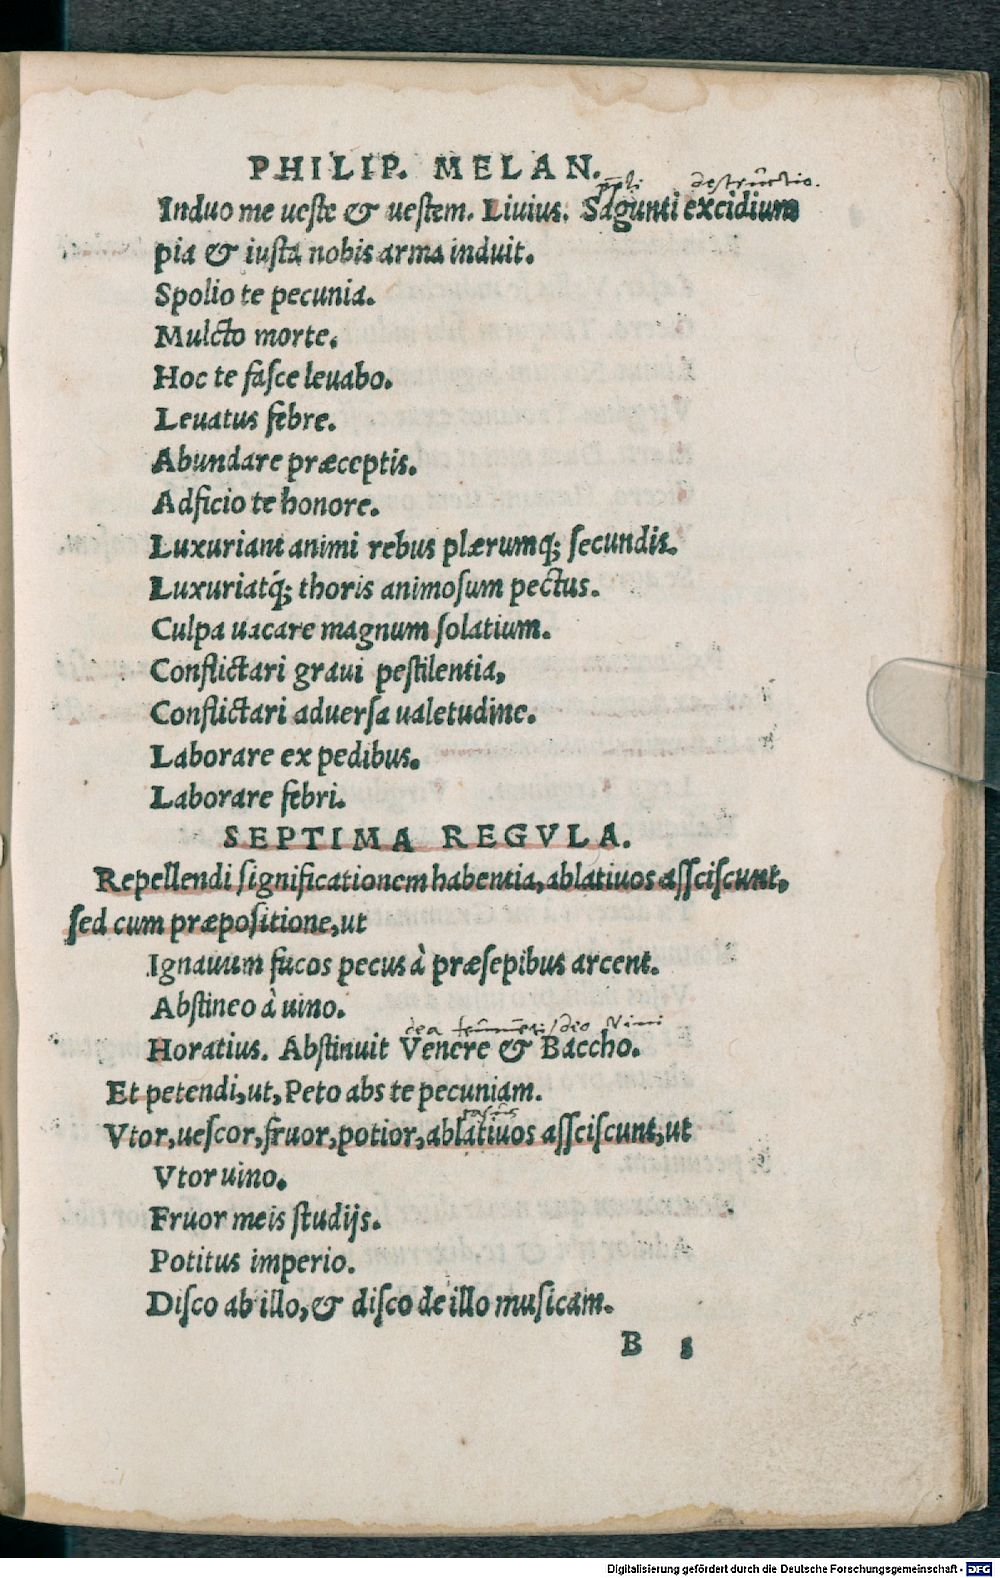 PHILIP. MELAN.
destructio.
Induo me ueſte & ueſtem. Liuius. Sagunti excidium
pia & iuſta nobis arma induit.
Spolio te pecunia.
Mulcto morte.
Hoc te faſce leuabo.
Leuatus febre.
Abundare præceptis.
Adficio te honore.
Luxuriant animi rebus plærumq; ſecundis.
Luxuriatq́; thoris animoſum pectus.
Culpa uacare magnum ſolatium.
Conflictari graui peſtilentia,
Conflictari aduerſa ualetudine.
Laborare ex pedibus.
Laborare febri.
SEPTIMA REGVLA.
Repellendi ſignificationem habentia, ablatiuos aſſciſcunt,
ſed cum præpoſitione, ut
Ignauum fucos pecus à præſepibus arcent.
Abſtineo à uino.
dea vini
Horatius. Abſtinuit Venere & Baccho.
Et petendi, ut, Peto abs te pecuniam.
Vtor, ueſcor, fruor, potior, ablatiuos aſſciſcunt, ut
Vtor uino.
Fruor meis ſtudijs.
Potitus imperio.
Diſco ab illo, & diſco de illo muſicam.
B 5
Digitalisierung gefördert durch die Deutsche Forschungsgemeinschaft - DFG